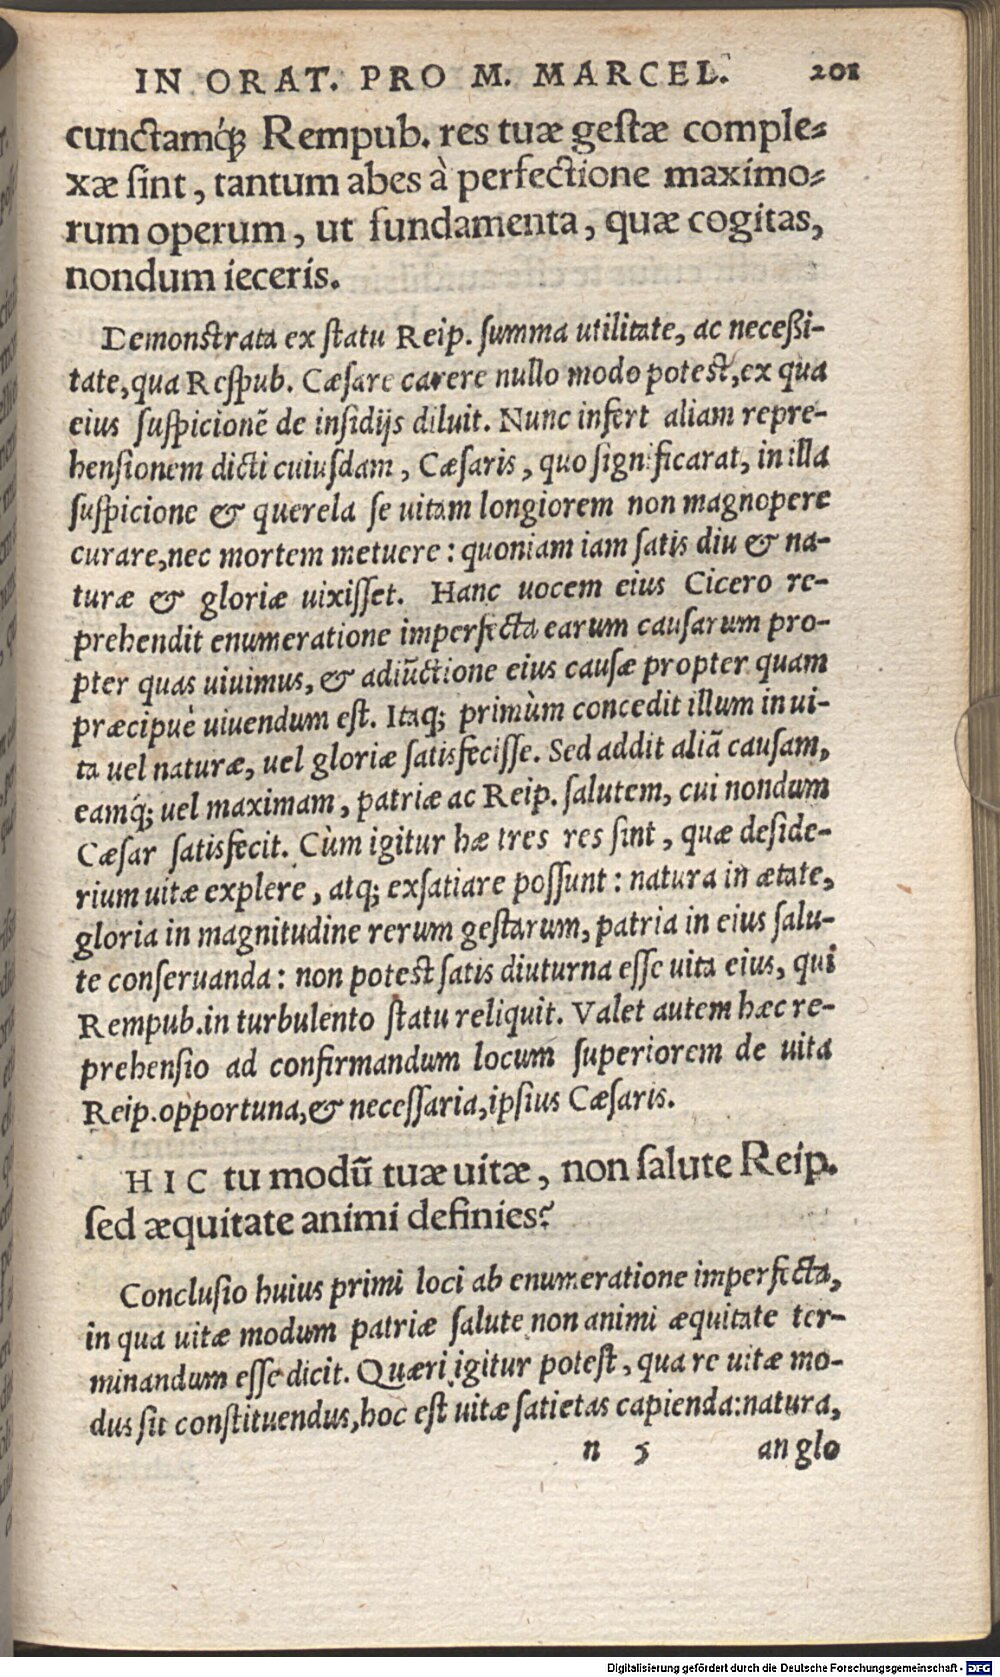 IN ORAT. PRO M. MARCEL. 201
cunctamq́; Rempub. res tuæ gestæ comple-
xæ sint, tantum abes à perfectione maximo-
rum operum, ut fundamenta, quæ cogitas,
nondum ieceris.
Demonstrata ex statu Reip. summa utilitate, ac neceßi-
tate, qua Respub. Cæsare carere nullo modo potest, ex qua
eius suspicionē de insidijs diluit. Nunc infert aliam repre-
hensionem dicti cuiusdam, Cæsaris, quo significarat, in illa
suspicione & querela se uitam longiorem non magnopere
curare, nec mortem metuere: quoniam iam satis diu & na-
turæ & gloriæ uixisset. Hanc uocem eius Cicero re-
prehendit enumeratione imperfecta earum causarum pro-
pter quas uiuimus, & adiūctione eius causæ propter quam
præcipuè uiuendum est. Itaq; primùm concedit illum in ui-
ta uel naturæ, uel gloriæ satisfecisse. Sed addit aliā causam,
eamq́; uel maximam, patriæ ac Reip. salutem, cui nondum
Cæsar satisfecit. Cùm igitur hæ tres res sint, quæ deside-
rium uitæ explere, atq; exsatiare possunt: natura in ætate,
gloria in magnitudine rerum gestarum, patria in eius salu-
te conseruanda: non potest satis diuturna esse uita eius, qui
Rempub. in turbulento statu reliquit. Valet autem hæc re-
prehensio ad confirmandum locum superiorem de uita
Reip. opportuna, & necessaria, ipsius Cæsaris.
HIC tu modū tuæ uitæ, non salute Reip.
sed æquitate animi definies?
Conclusio huius primi loci ab enumeratione imperfecta,
in qua uitæ modum patriæ salute non animi æquitate ter-
minandum esse dicit. Quæri igitur potest, qua re uitæ mo-
dus sit constituendus, hoc est uitæ satietas capienda: natura,
n 5 an glo
Digitalisierung gefördert durch die Deutsche Forschungsgemeinschaft - DFG